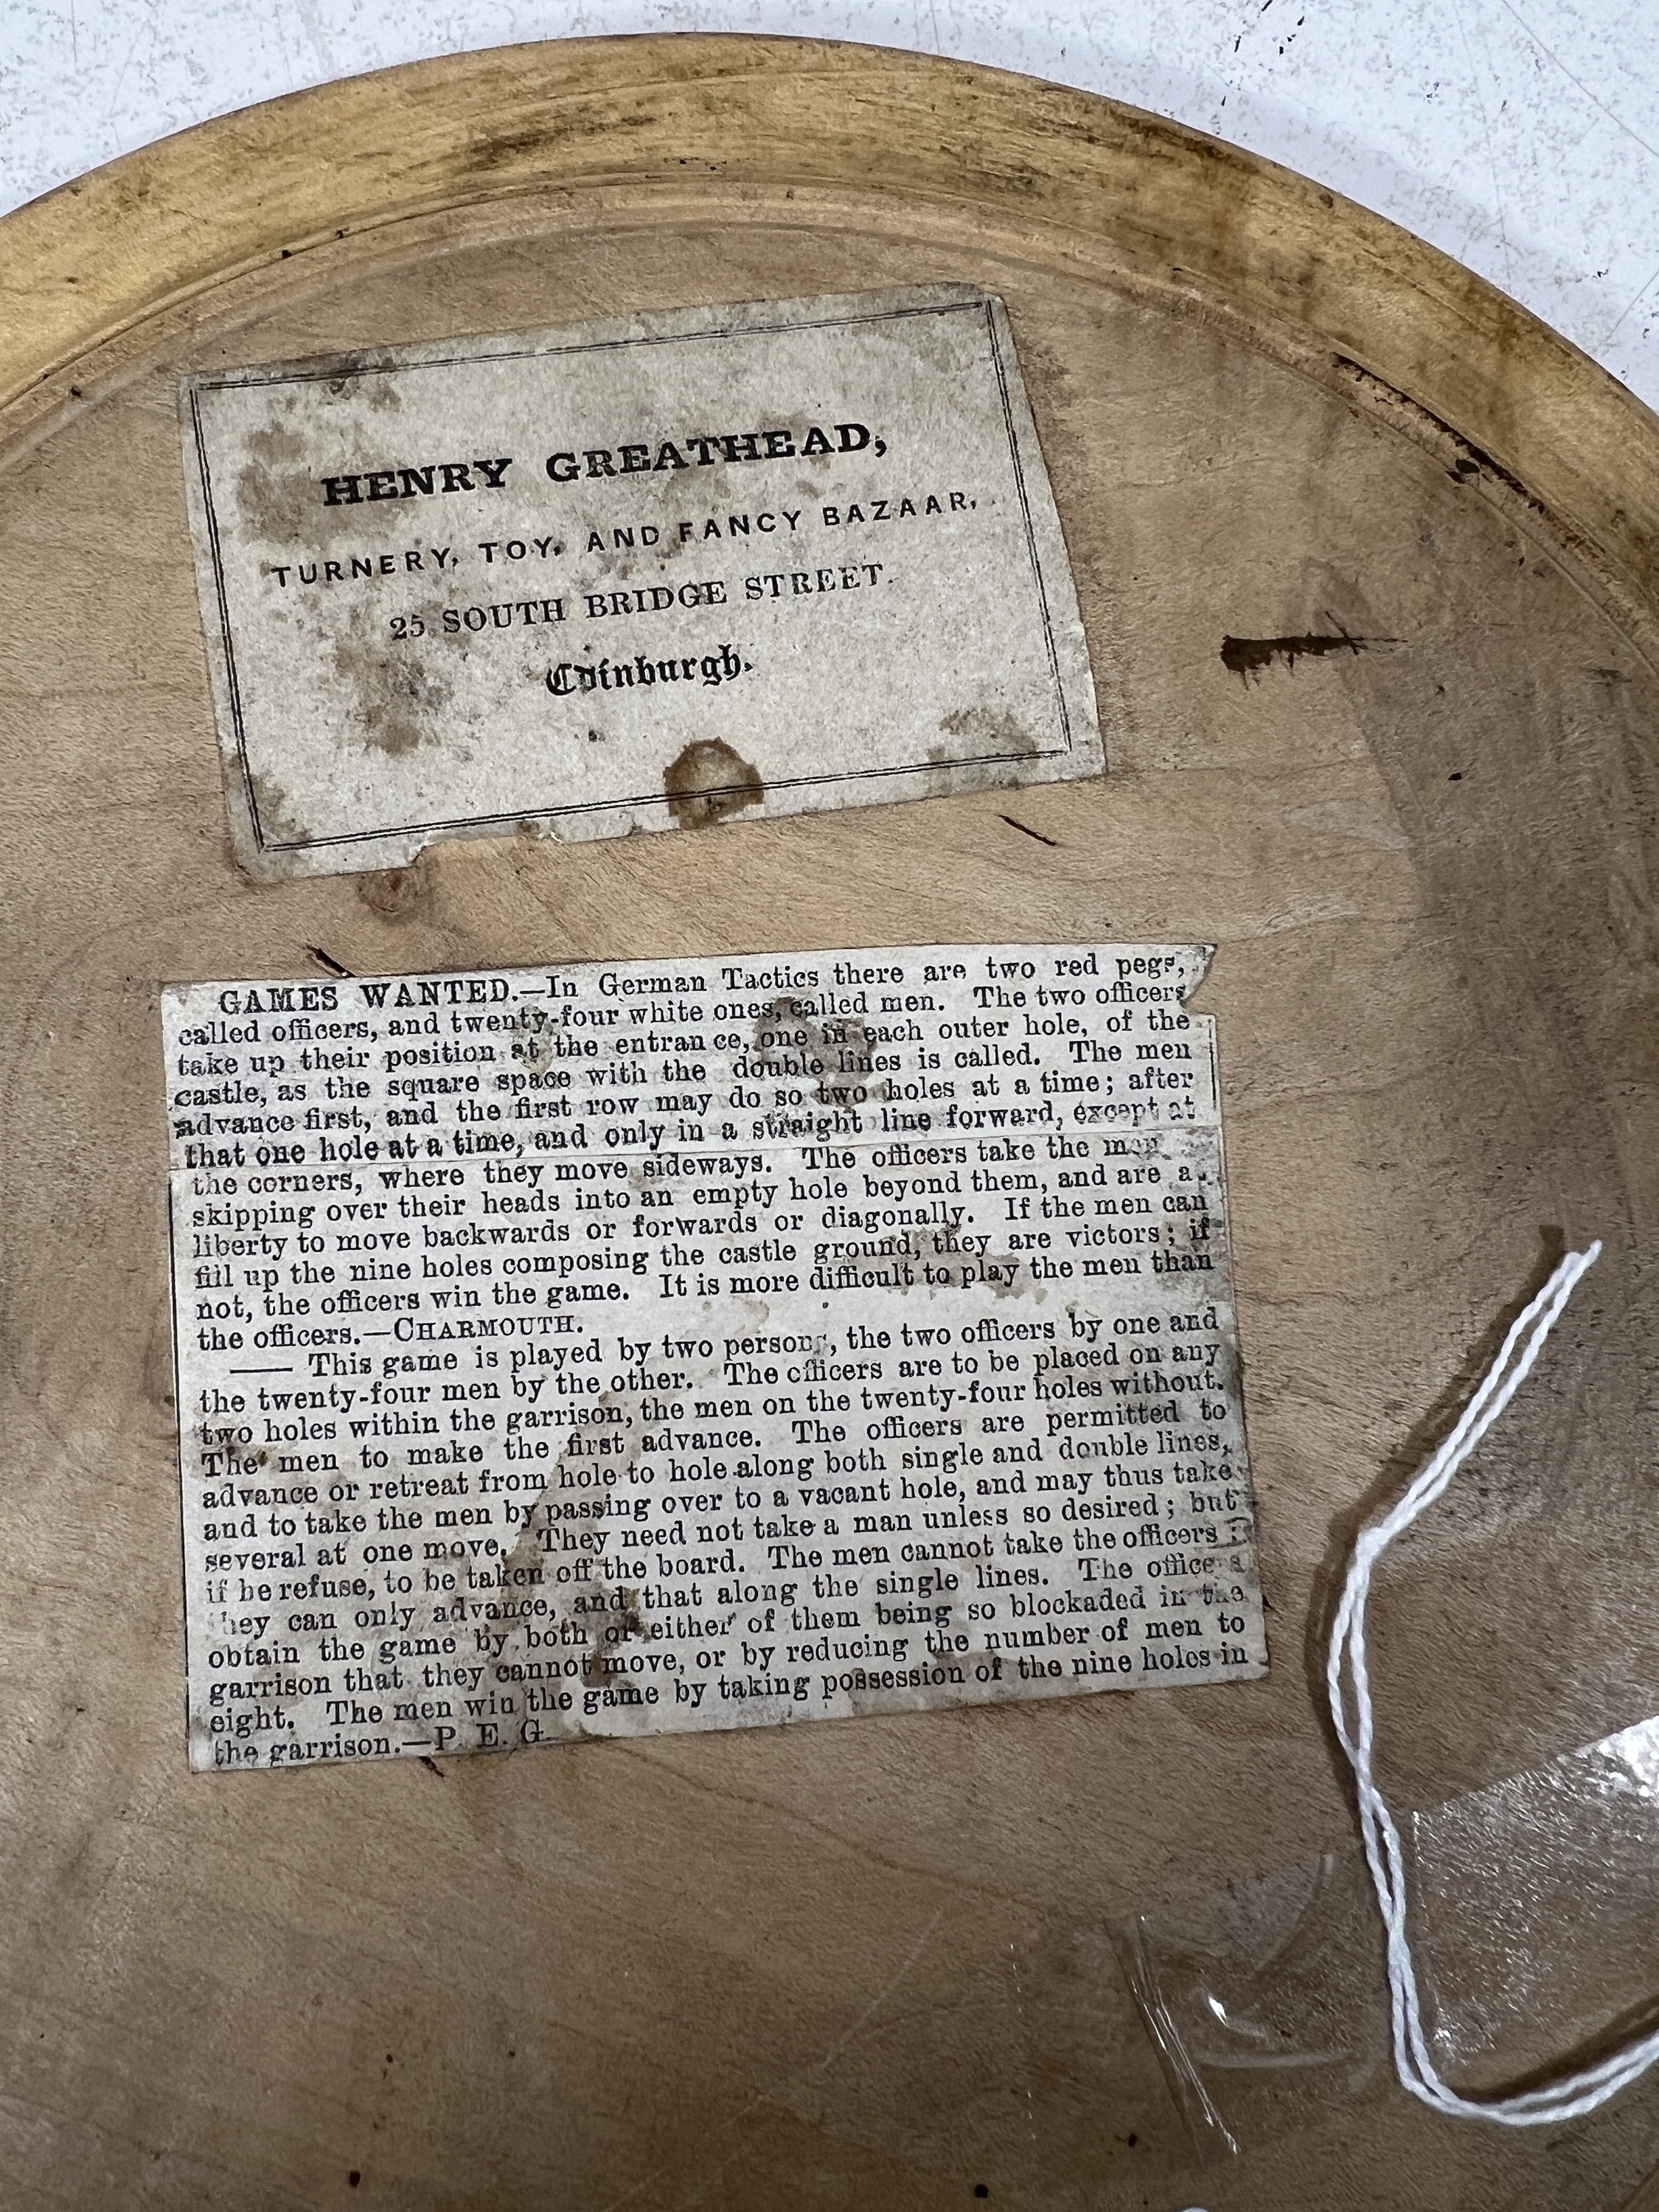 HENRY GREATHEAD,
TURNERY, TOY, AND FANCY BAZAAR,
25 SOUTH BRIDGE STREET.
Edinburgh.
GAMES WANTED.—In German Tactics there are two red pegs,
called officers, and twenty-four white ones, called men. The two officers
take up their position at the entrance, one in each outer hole, of the
castle, as the square space with the double lines is called. The men
advance first, and the first row may do so two holes at a time; after
that one hole at a time, and only in a straight line forward, except at
the corners, where they move sideways. The officers take the men
skipping over their heads into an empty hole beyond them, and are a
liberty to move backwards or forwards or diagonally. If the men can
fill up the nine holes composing the castle ground, they are victors; if
not, the officers win the game. It is more difficult to play the men than
the officers.—CHARMOUTH.
—— This game is played by two persons, the two officers by one and
the twenty-four men by the other. The officers are to be placed on any
two holes within the garrison, the men on the twenty-four holes without.
The men to make the first advance. The officers are permitted to
advance or retreat from hole to hole along both single and double lines,
and to take the men by passing over to a vacant hole, and may thus take
several at one move. They need not take a man unless so desired; but
if he refuse, to be taken off the board. The men cannot take the officers
they can only advance, and that along the single lines. The officers
obtain the game by both or either of them being so blockaded in the
garrison that they cannot move, or by reducing the number of men to
eight. The men win the game by taking possession of the nine holes in
the garrison.—P. E. G.